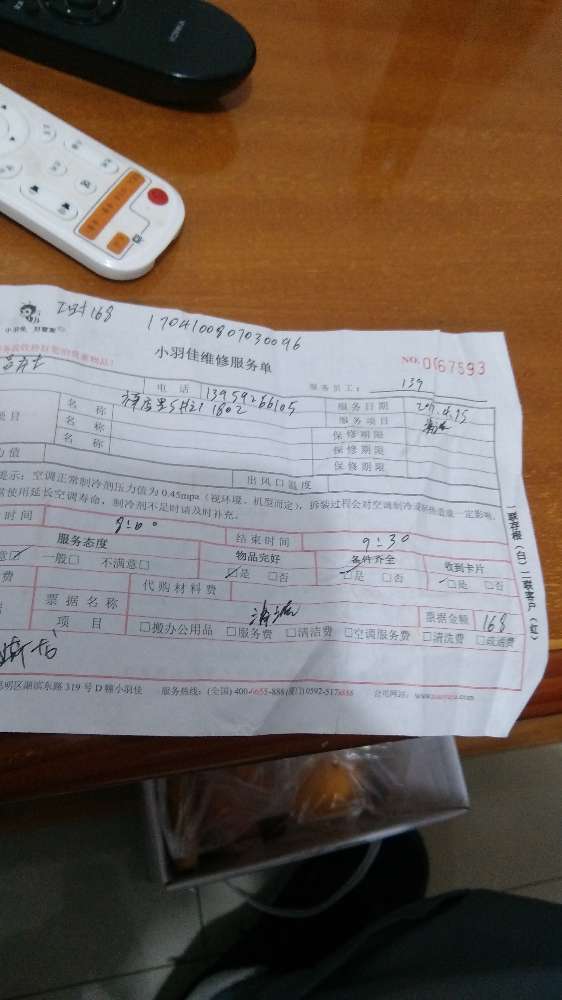 168 1704100807030096
小羽佳维修服务单
NO. 0067593
电 话 13959266105 服务员工: 139
名 称 1802 服务日期
名 称 服务项目
名 称 保修期限
保修期限
保修期限
力值 出风口温度
提示:空调正常制冷剂压力值为 0.45mpa(视环境、机型而定),拆装过程会对空调制冷或制热造成一定影响,
常使用延长空调寿命,制冷剂不足时请及时补充。
时间 9:00 结束时间 9:30
服务态度 物品完好 备件齐全 收到卡片
意☑ 一般□ 不满意□ ☑是 □否 ☑是 □否 ☑是 □否
费 代购材料费
票据名称 清洗 票据金额 168
项 目 □搬办公用品 □服务费 □清洁费 □空调服务费 □清洗费 □
思明区湖滨东路 319 号 D 幢小羽佳 服务热线:(全国) 400-6655-888(厦门)0592-5178888 公司网站:
一联存根(白)二联客户(红)